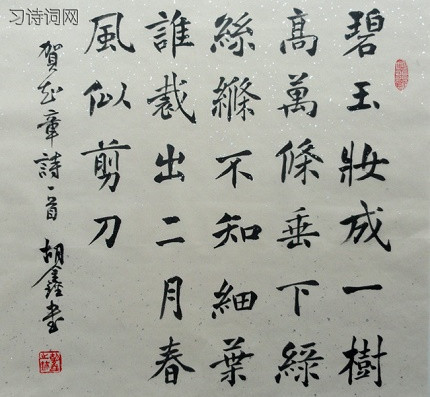 习诗词网
碧玉妝成一樹
高萬條垂下綠
絲縧不知細葉
誰裁出二月春
風似剪刀
賀知章詩一首 胡鑫書